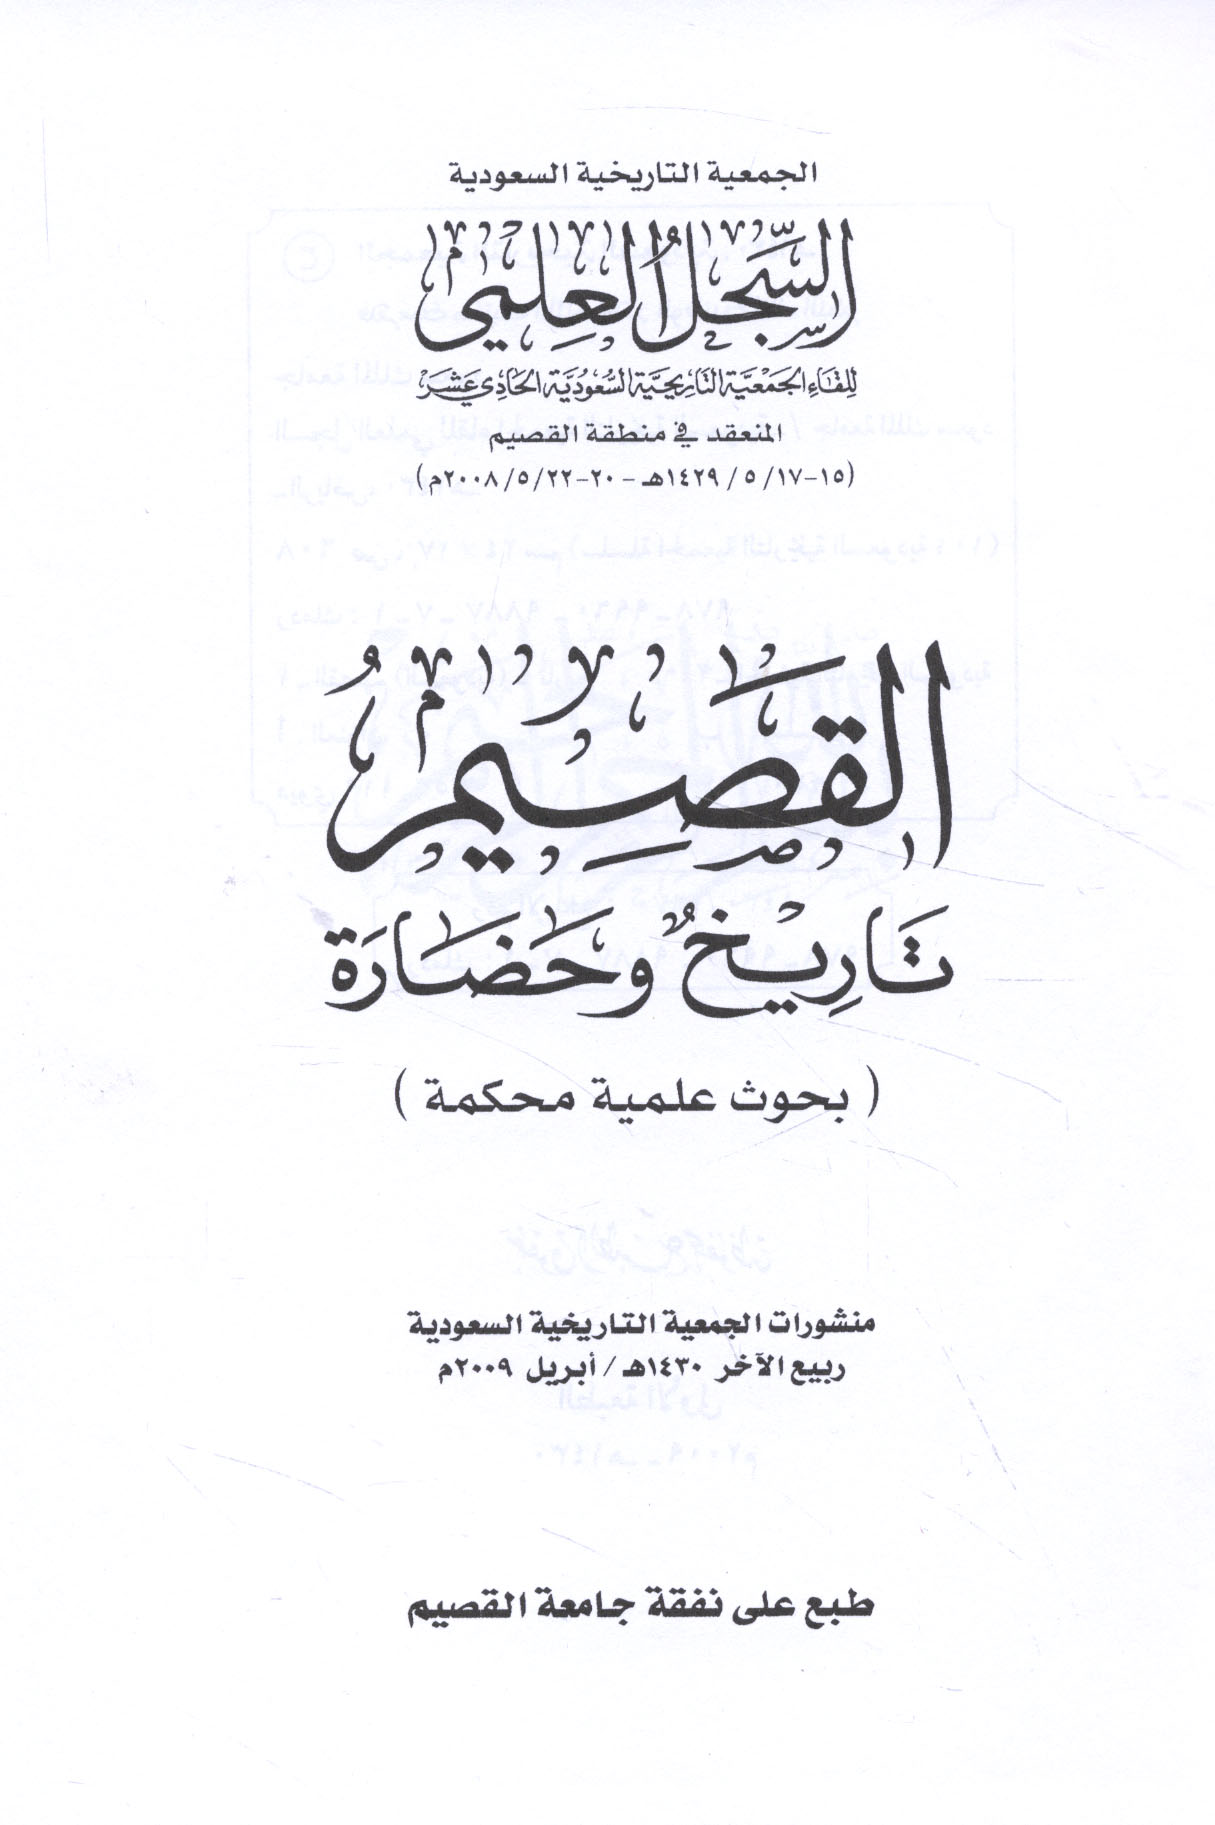 الجمعية التاريخية السعودية
السجل العلمي
للقاء الجمعية التاريخية السعودية الحادي عشر
المنعقد في منطقة القصيم
(١٥-١٧/ ٥ /١٤٢٩هـ - ٢٠-٢٢/ ٥ /٢٠٠٨م)
القصيم
تاريخ وحضارة
( بحوث علمية محكمة )
منشورات الجمعية التاريخية السعودية
ربيع الآخر ١٤٣٠هـ / أبريل ٢٠٠٩م
طبع على نفقة جامعة القصيم